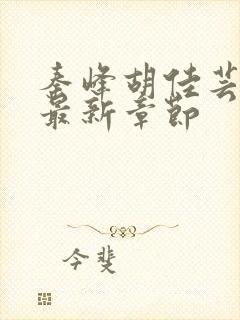 秦峰胡佳芸
最新章节
今斐